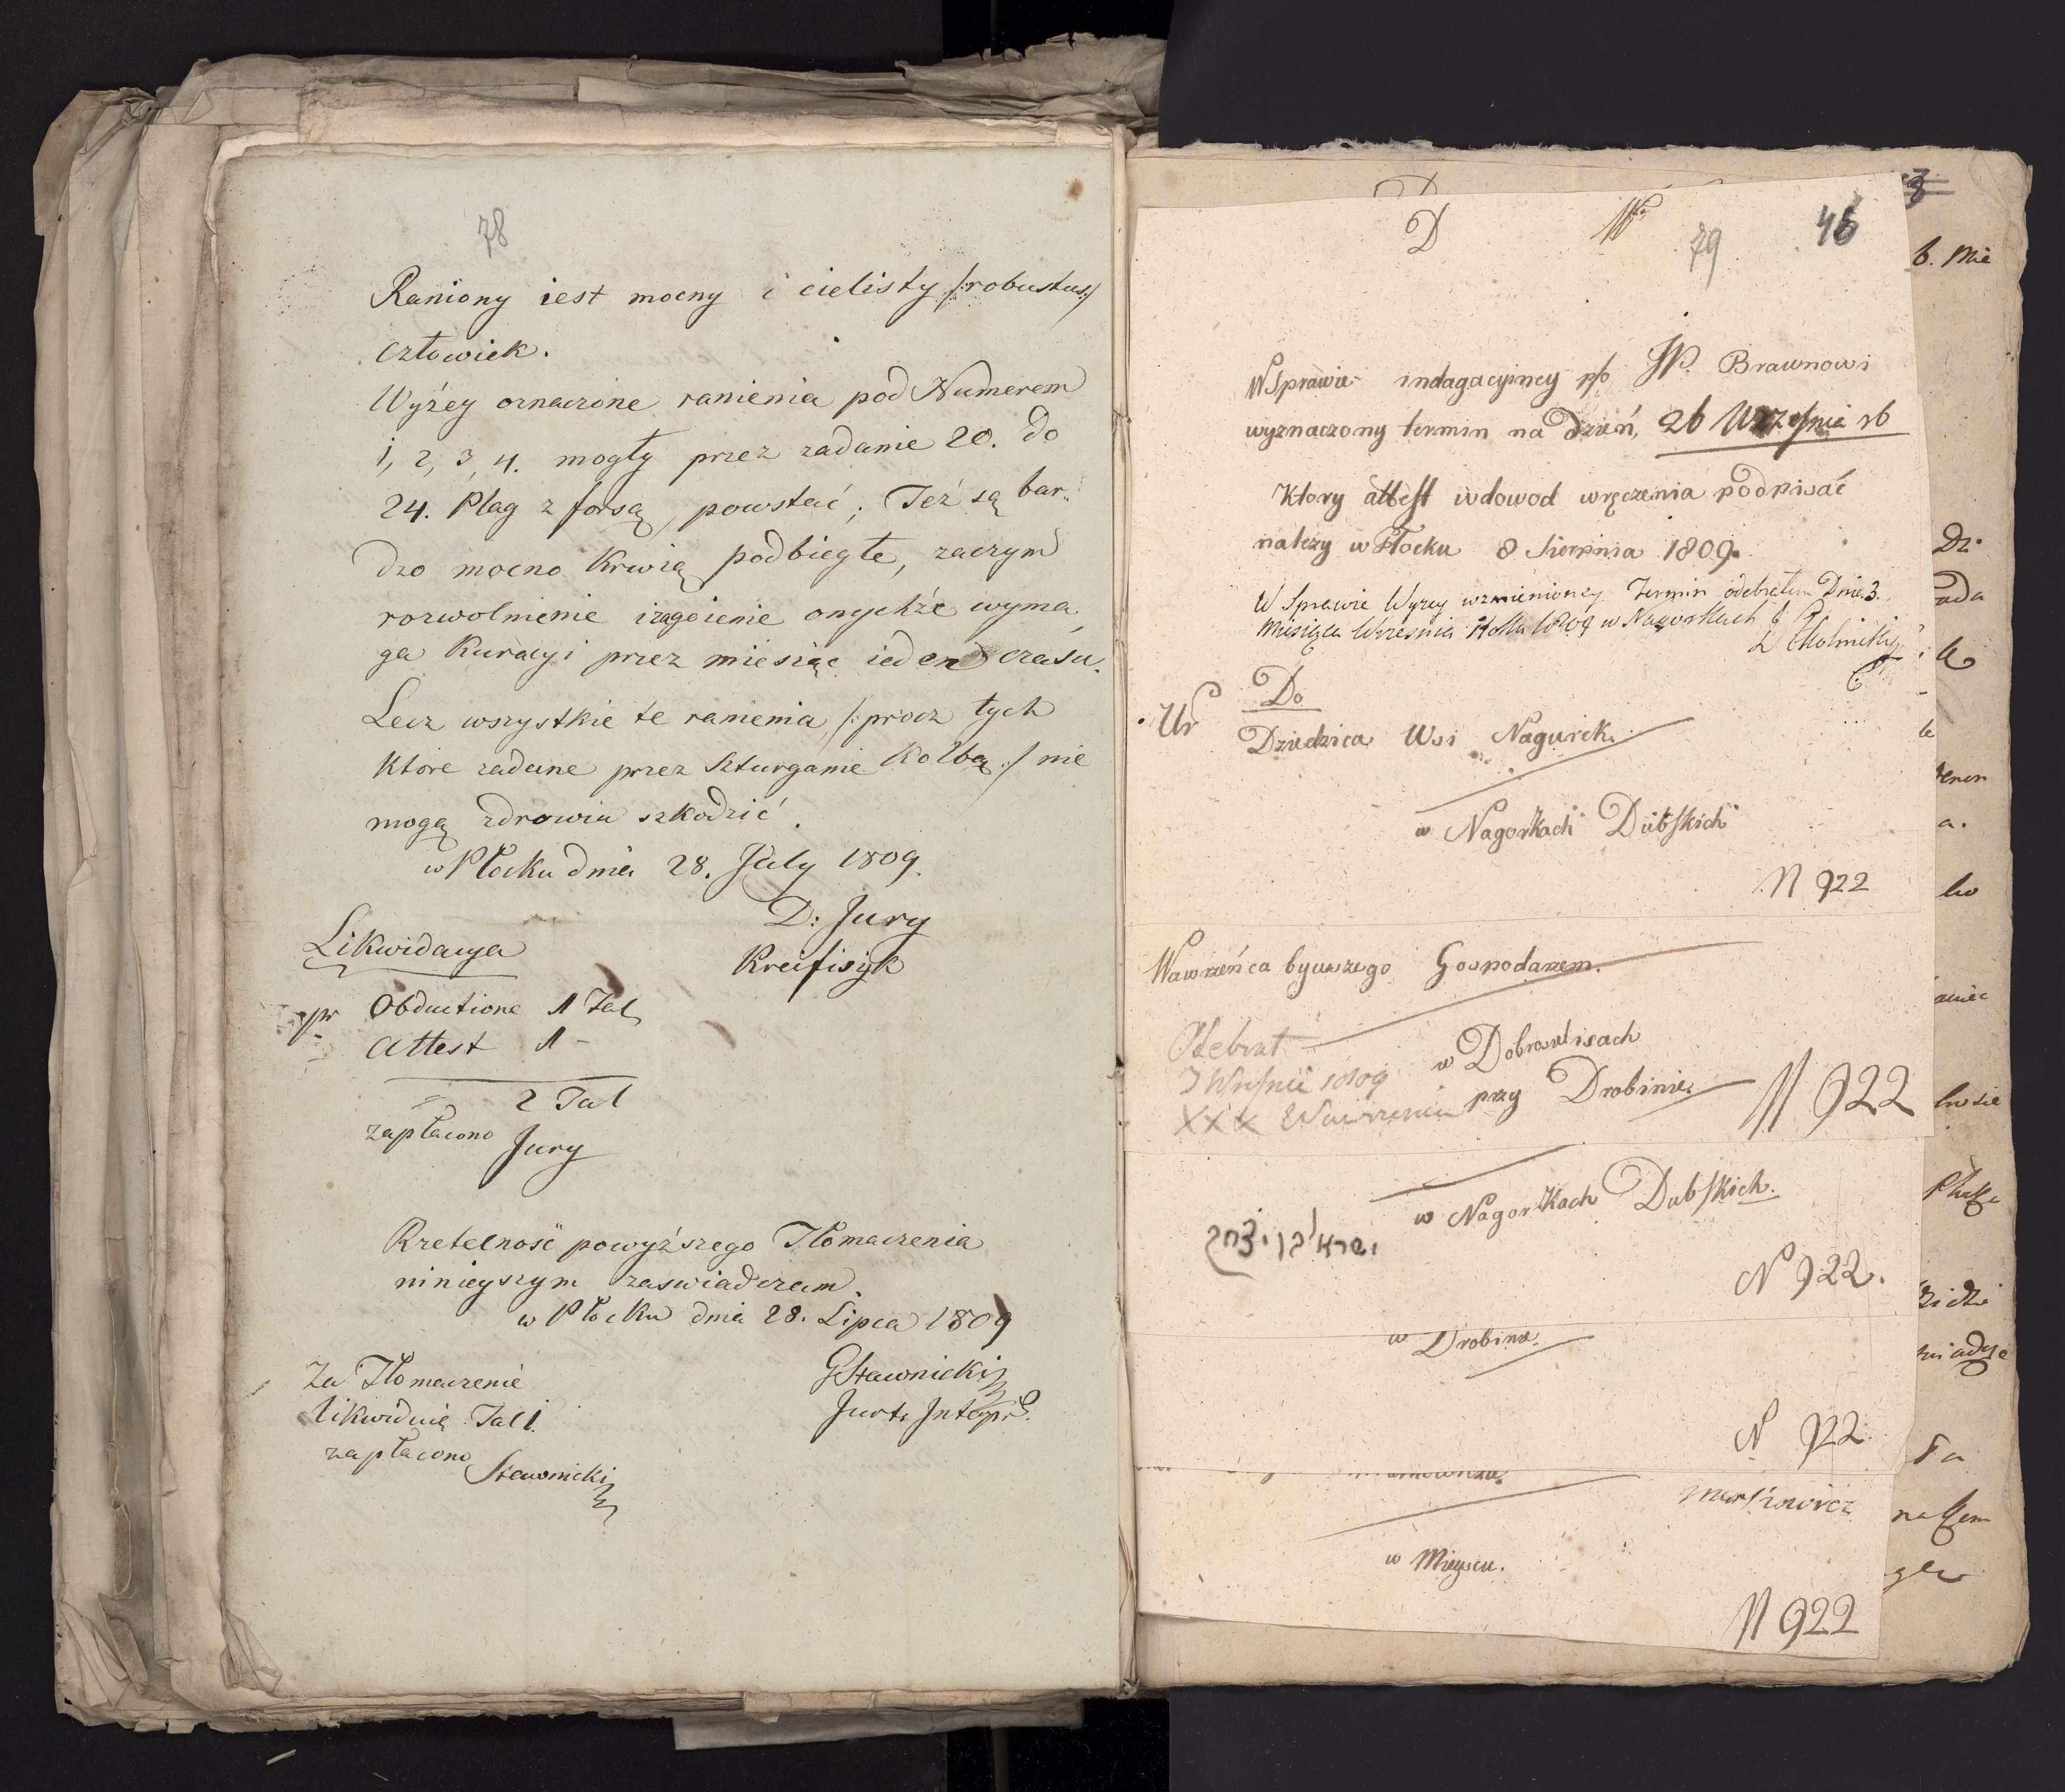 78
Raniony iest mocny i cielisty /:robustus:/
człowiek.
Wyżey oznaczone ranienia pod Numerem
1, 2, 3, 4. mogły przez zadanie 20. do
24. Plag z forsą powstać; Też są bar
dzo mocno Krwią podbiegłe, zaczym
rozwolnienie i zagoienie onychże wyma
ga Kuracyi przez miesiąc ieden czasu.
Lecz wszystkie te ranienia /:procz tych
które zadane przez Szturganie Kolbą:/ nie
mogą zdrowiu szkodzić.
w Płocku dnia 28. July 1809.
D: Jury
Kreifisyk
Likwidacya
pr Obductione 1 Tal
Attest 1 -
2 Tal
zapłacono Jury
Rzetelność powyższego Tłomaczenia
ninieyszym zaswiadczam.
w Płocku dnia 28. Lipca 1809
GSławnicki
Za Tłomaczenie
likwiduię Tal 1.
zapłacono
Sławnicki
D
79
46
W Sprawie indagacyiney p/o JP. Brawnowi
wyznaczony termin na dzień, 26 Września rb
Ktory attest w dowod wręczenia podpisać
należy w Płocku 8 Sierpnia 1809.
W Sprawie Wyżey wzmienioney Termin odebrałem Dnia 3.
Miesiąca Wrzesnia Roku 1809 w Nagorkach
Do
Ur Dziedzica Wsi Nagurek.
w Nagorkach Dubskich
N 922
Wawrzeńca bywszego Gospodarzem.
Odebrał
w Dobrosielicach
3 Wrześnie 1809
przy Drobinie.
XXX Wawrzeniec
N 922
w Nagorkach Dubskich.
ישראל בן יצחק
N 922.
w Drobinie.
N 922
w Mieyscu.
N 922
b. Mie